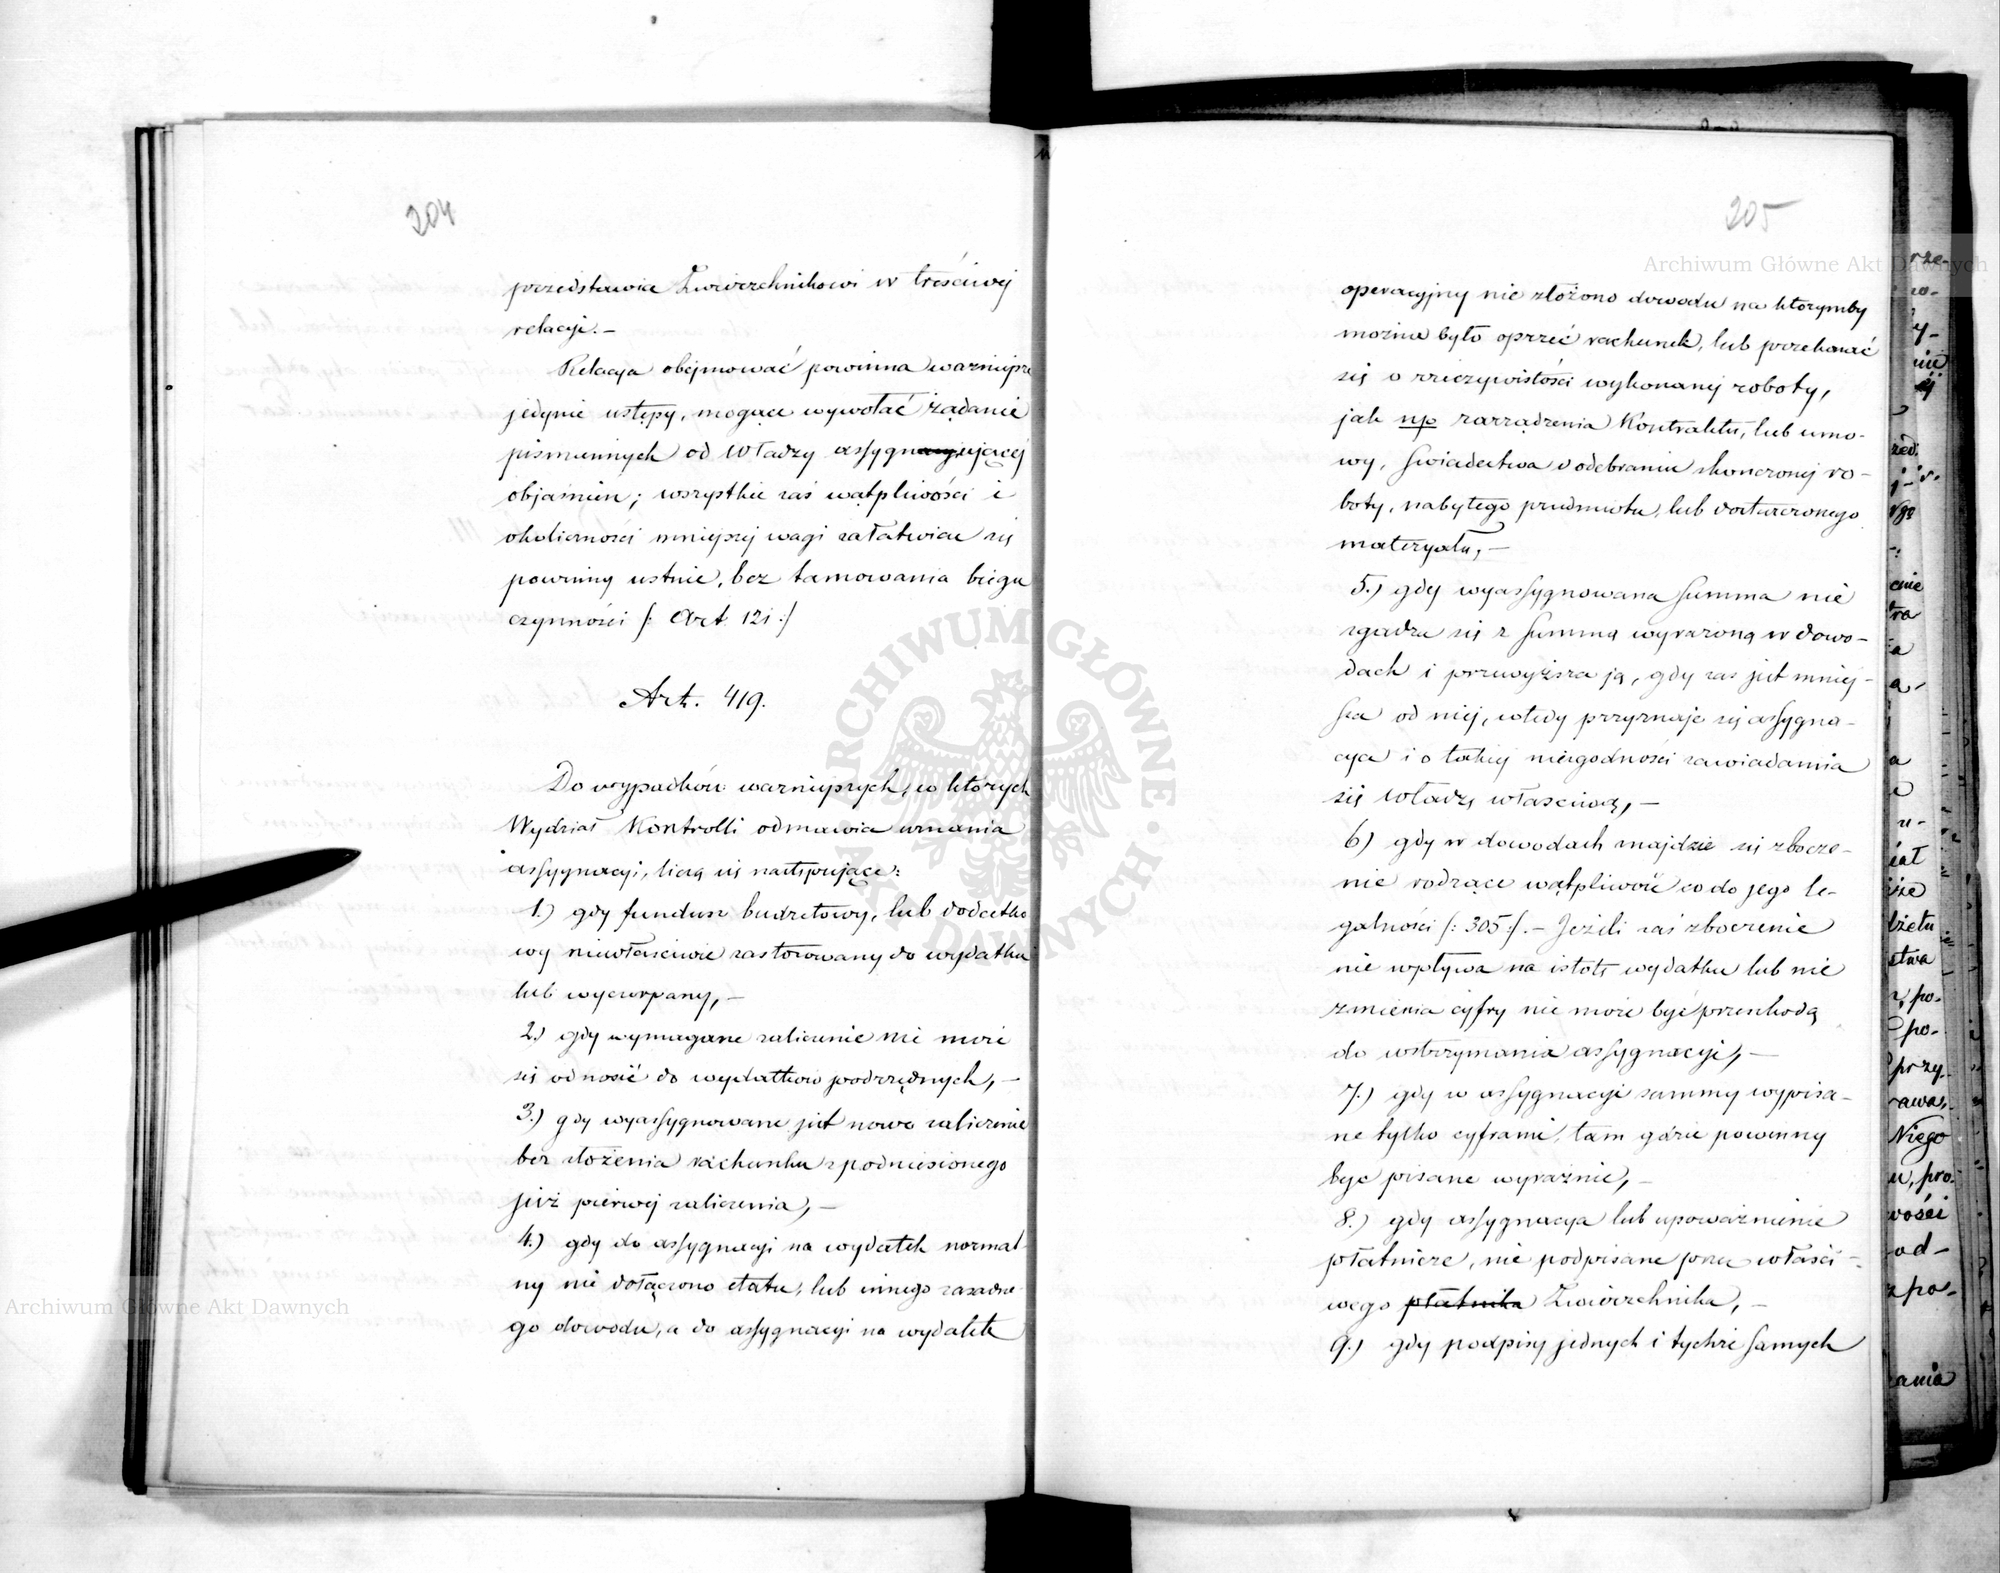 204
przedstawia Zwierzchnikowi w treściwej
relacji. –
Relacya obejmować powinna ważniejsze
jedynie ustępy, mogące wywołać żądanie
pismiennych od Władzy assygnującej
objaśnień; wszystkie zaś wątpliwości i
okoliczności mniejszej wagi załatwiać się
powinny ustnie, bez tamowania biegu
czynności /: Art. 121 :/
Art. 419.
Do wypadków ważniejszych, w których
Wydział Kontrolli odmawia uznania
assygnacyi, liczą się następujące:
1.) gdy fundusz budżetowy, lub dodatko
wy niewłaściwie zastosowany do wydatku
lub wyczerpany, –
2.) gdy wymagane zaliczenie nie może
się odnosić do wydatków podrzędnych, –
3.) gdy wyassygnowane jest nowe zaliczenie
bez złożenia rachunku z podniesionego
już pierwej zaliczenia, –
4.) gdy do assygnacyi na wydatek normal-
ny nie dołączono etatu, lub innego zasadne
go dowodu, a do assygnacyi na wydatek
205
operacyjny nie złożono dowodu na którymby
można było oprzeć rachunek, lub przekonać
się o rzeczywistości wykonanej roboty,
jak np zarządzenia Kontraktu, lub umo-
wy, świadectwa o odebraniu skończonej ro-
boty, nabytego przedmiotu, lub dostarczonego
materyału, –
5.) gdy wyassygnowana summa nie
zgadza się z summą wyrażoną w dowo-
dach i przewyższa ją, gdy zaś jest mniej-
sza od niej, wtedy przyznaje się assygna-
cya i o takiej niezgodności zawiadamia
się Władzę właściwą, –
6) gdy w dowodach znajdzie się zbocze-
nie rodzące wątpliwość co do jego le-
galności /: 305 :/. – Jeżeli zaś zboczenie
nie wpływa na istotę wydatku lub nie
zmienia cyfry nie może być przeszkodą
do wstrzymania assygnacyi, –
7.) gdy w assygnacyi summy wypisa-
ne tylko cyframi, tam gdzie powinny
być pisane wyraźnie, –
8.) gdy assygnacya lub upoważnienie
płatnicze, nie podpisane przez właści-
wego płatnika Zwierzchnika, –
9.) gdy podpisy jednych i tychże samych
Archiwum Główne Akt Dawnych
Archiwum Główne Akt Dawnych
ARCHIWUM GŁÓWNE AKT DAWNYCH